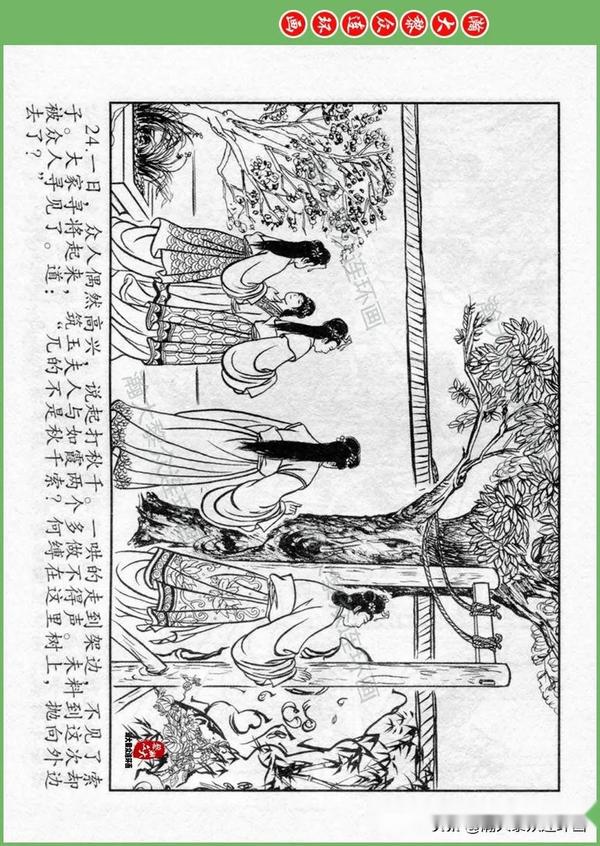 瀚大黎众连环画
24.一日，众人偶然高兴，说起打秋千。一哄的走到架边，不见了索
子。大家寻将起来，筑玉夫人与如霞两个多做不得声。未料到这次却
被众人寻见了。道：“兀的不是秋千索？何缚在这里树上，抛向外边
去了？”